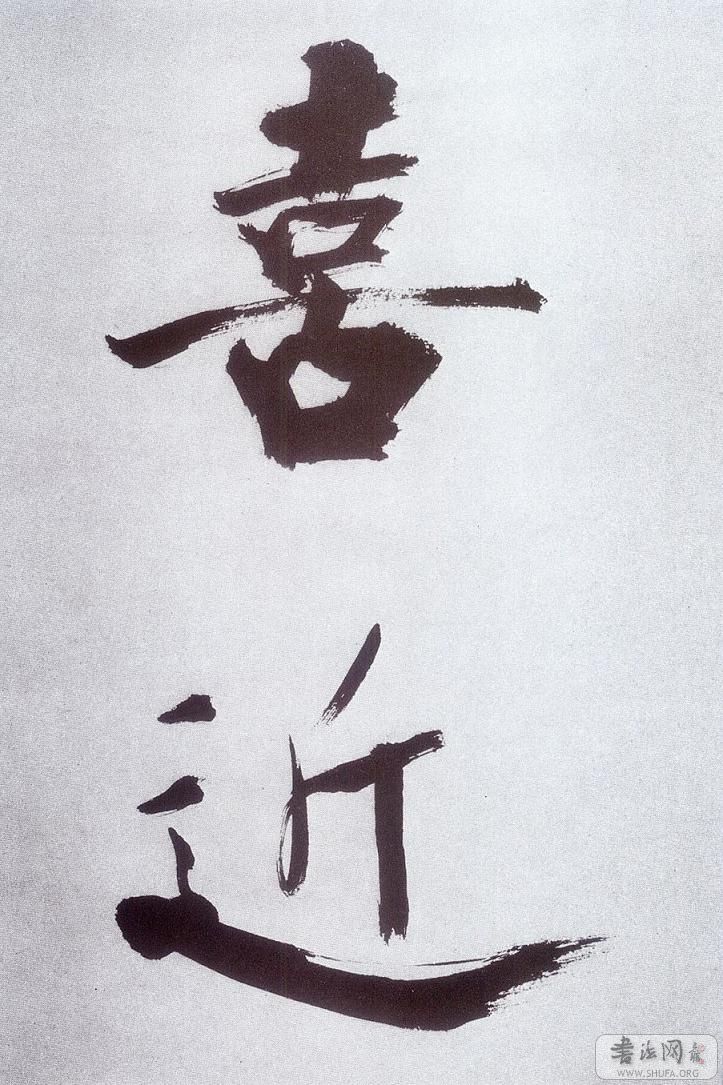 喜
近
书法网
WWW.SHUFA.ORG